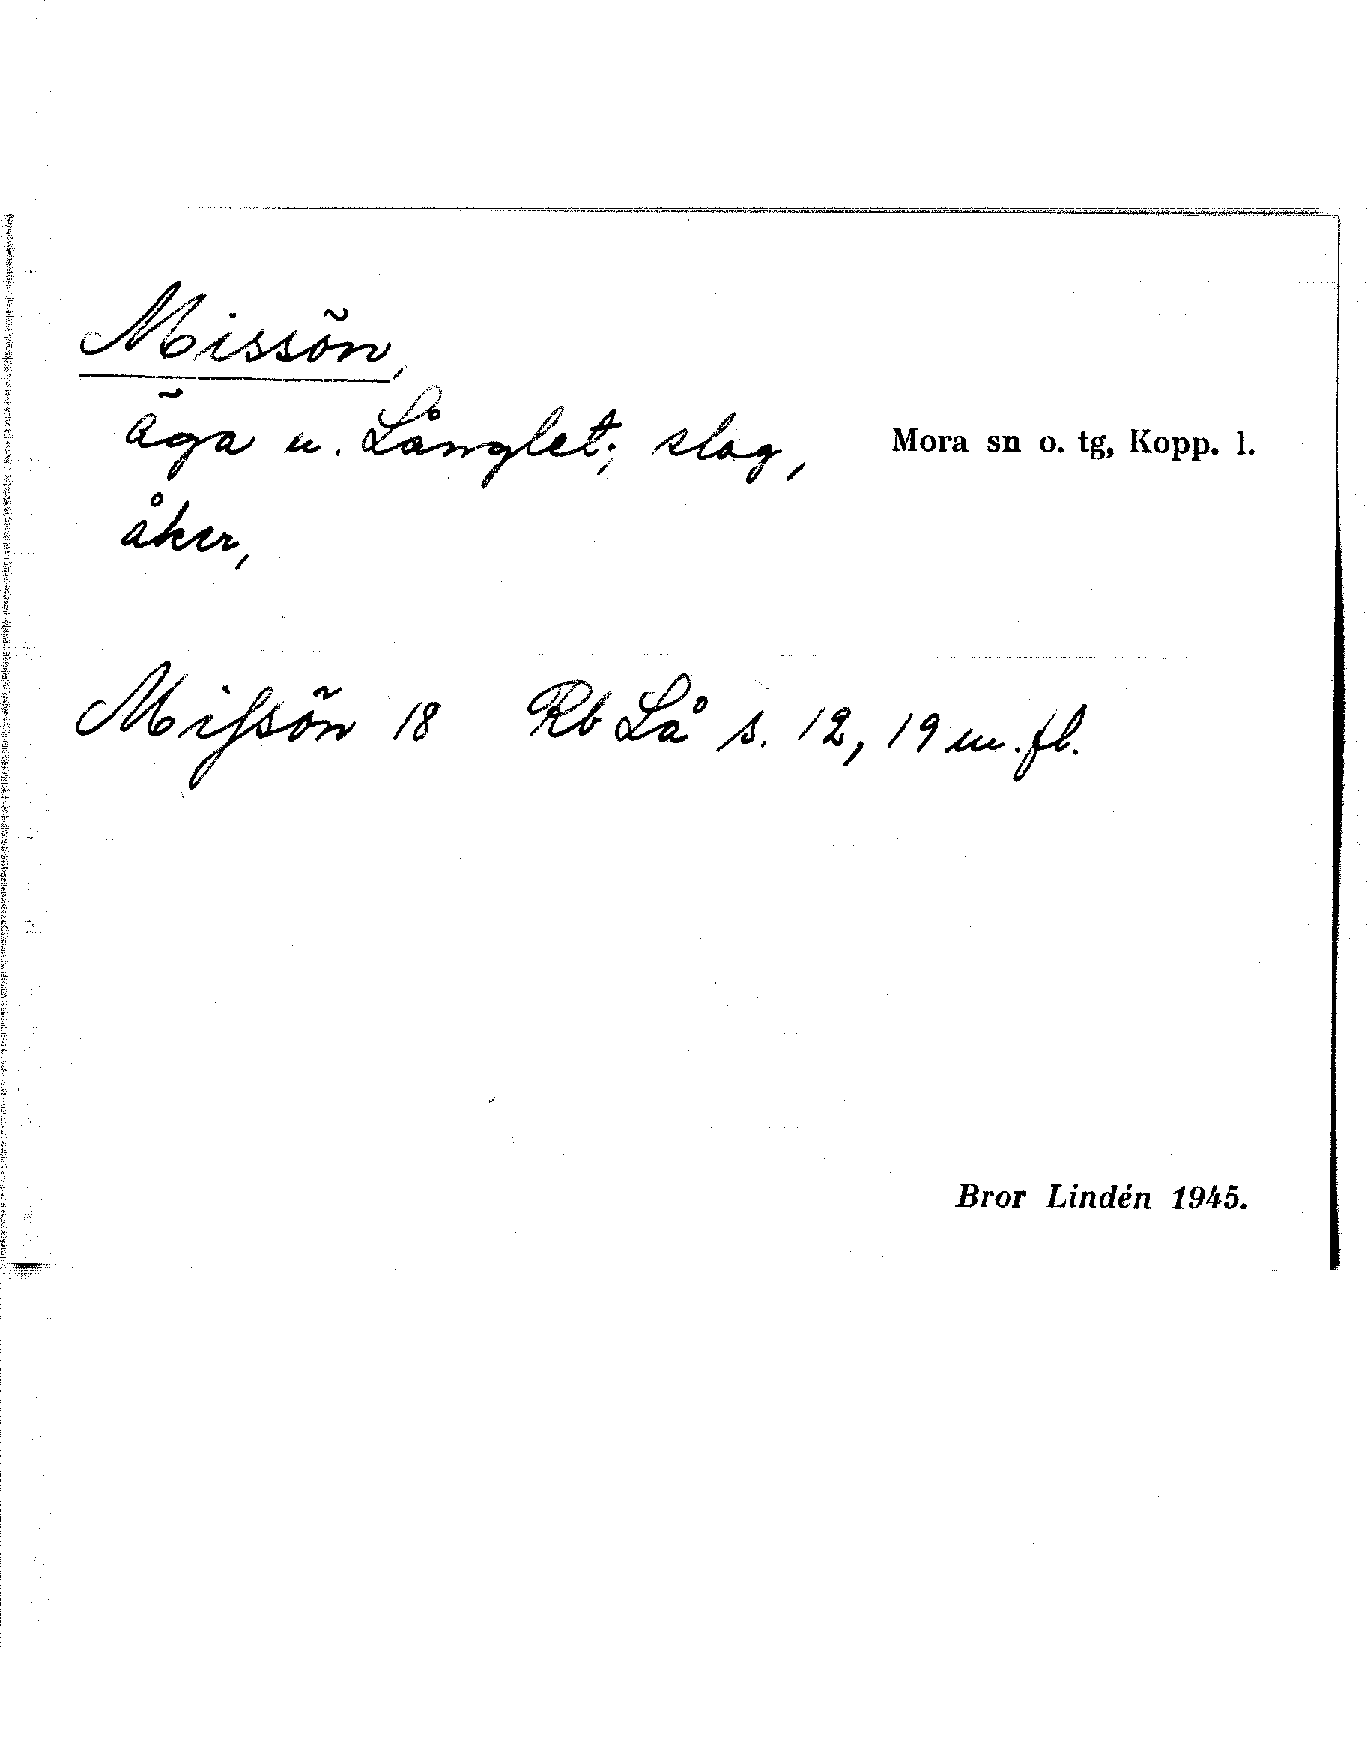 Missön,
äga u. Långlet; slog,
Mora sn o. tg, Kopp. l.
åker,
Miſsön 18 Rb Lå s. 12, 19 m. fl.
Bror Lindén 1945.